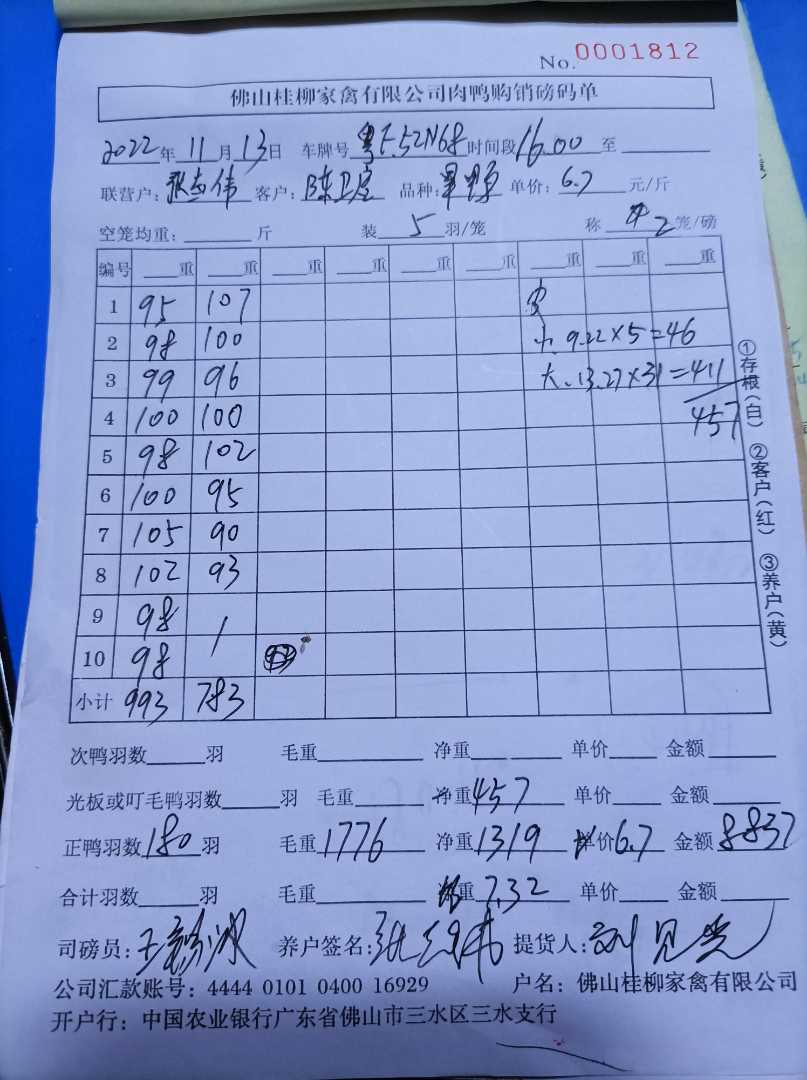 No. 0001812
佛山桂柳家禽有限公司肉鸭购销磅码单
2022年11月13日 车牌号 粤F.52N68 时间段 16.00 至
联营户: 张志伟 客户: 陈卫 品种: 单价: 6.7 元/斤
空笼均重: 斤 装 5 羽/笼 称 2 笼/磅
编号 重 重 重 重 重 重 重 重 重
1 95 107 皮
2 98 100 小. 9.22×5=46
3 99 96 大. 13.27×31=411
4 100 100 457
5 98 102
6 100 95
7 105 90
8 102 93
9 98 /
10 98
小计 993 783
①存根(白) ②客户(红) ③养户(黄)
次鸭羽数 羽 毛重 净重 单价 金额
光板或叮毛鸭羽数 羽 毛重 净重 457 单价 金额
正鸭羽数 180 羽 毛重 1776 净重 1319 单价 6.7 金额 8837
合计羽数 羽 毛重 重 7.32 单价 金额
司磅员: 王 冰 养户签名: 张 伟 提货人: 刘见光
公司汇款账号: 4444 0101 0400 16929 户名: 佛山桂柳家禽有限公司
开户行: 中国农业银行广东省佛山市三水区三水支行